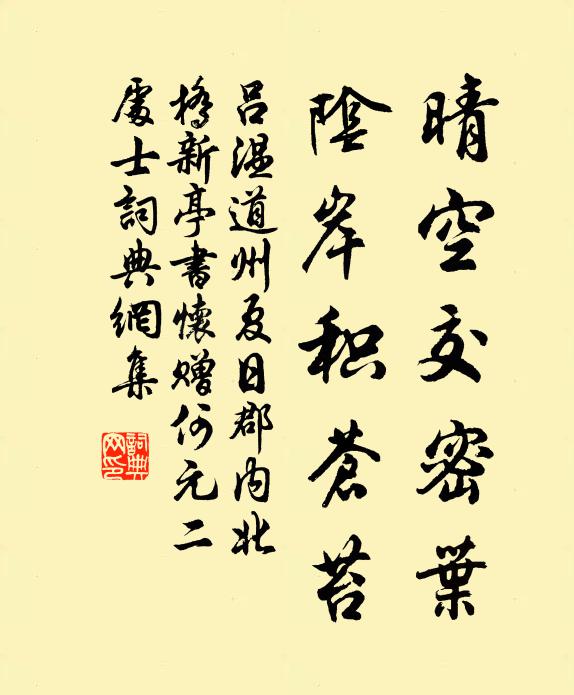 晴空交密葉
陰岸积蒼苔
呂温道州夏日郡内北
橋新亭書懷贈何元二
處士詞典網集
詞典网印